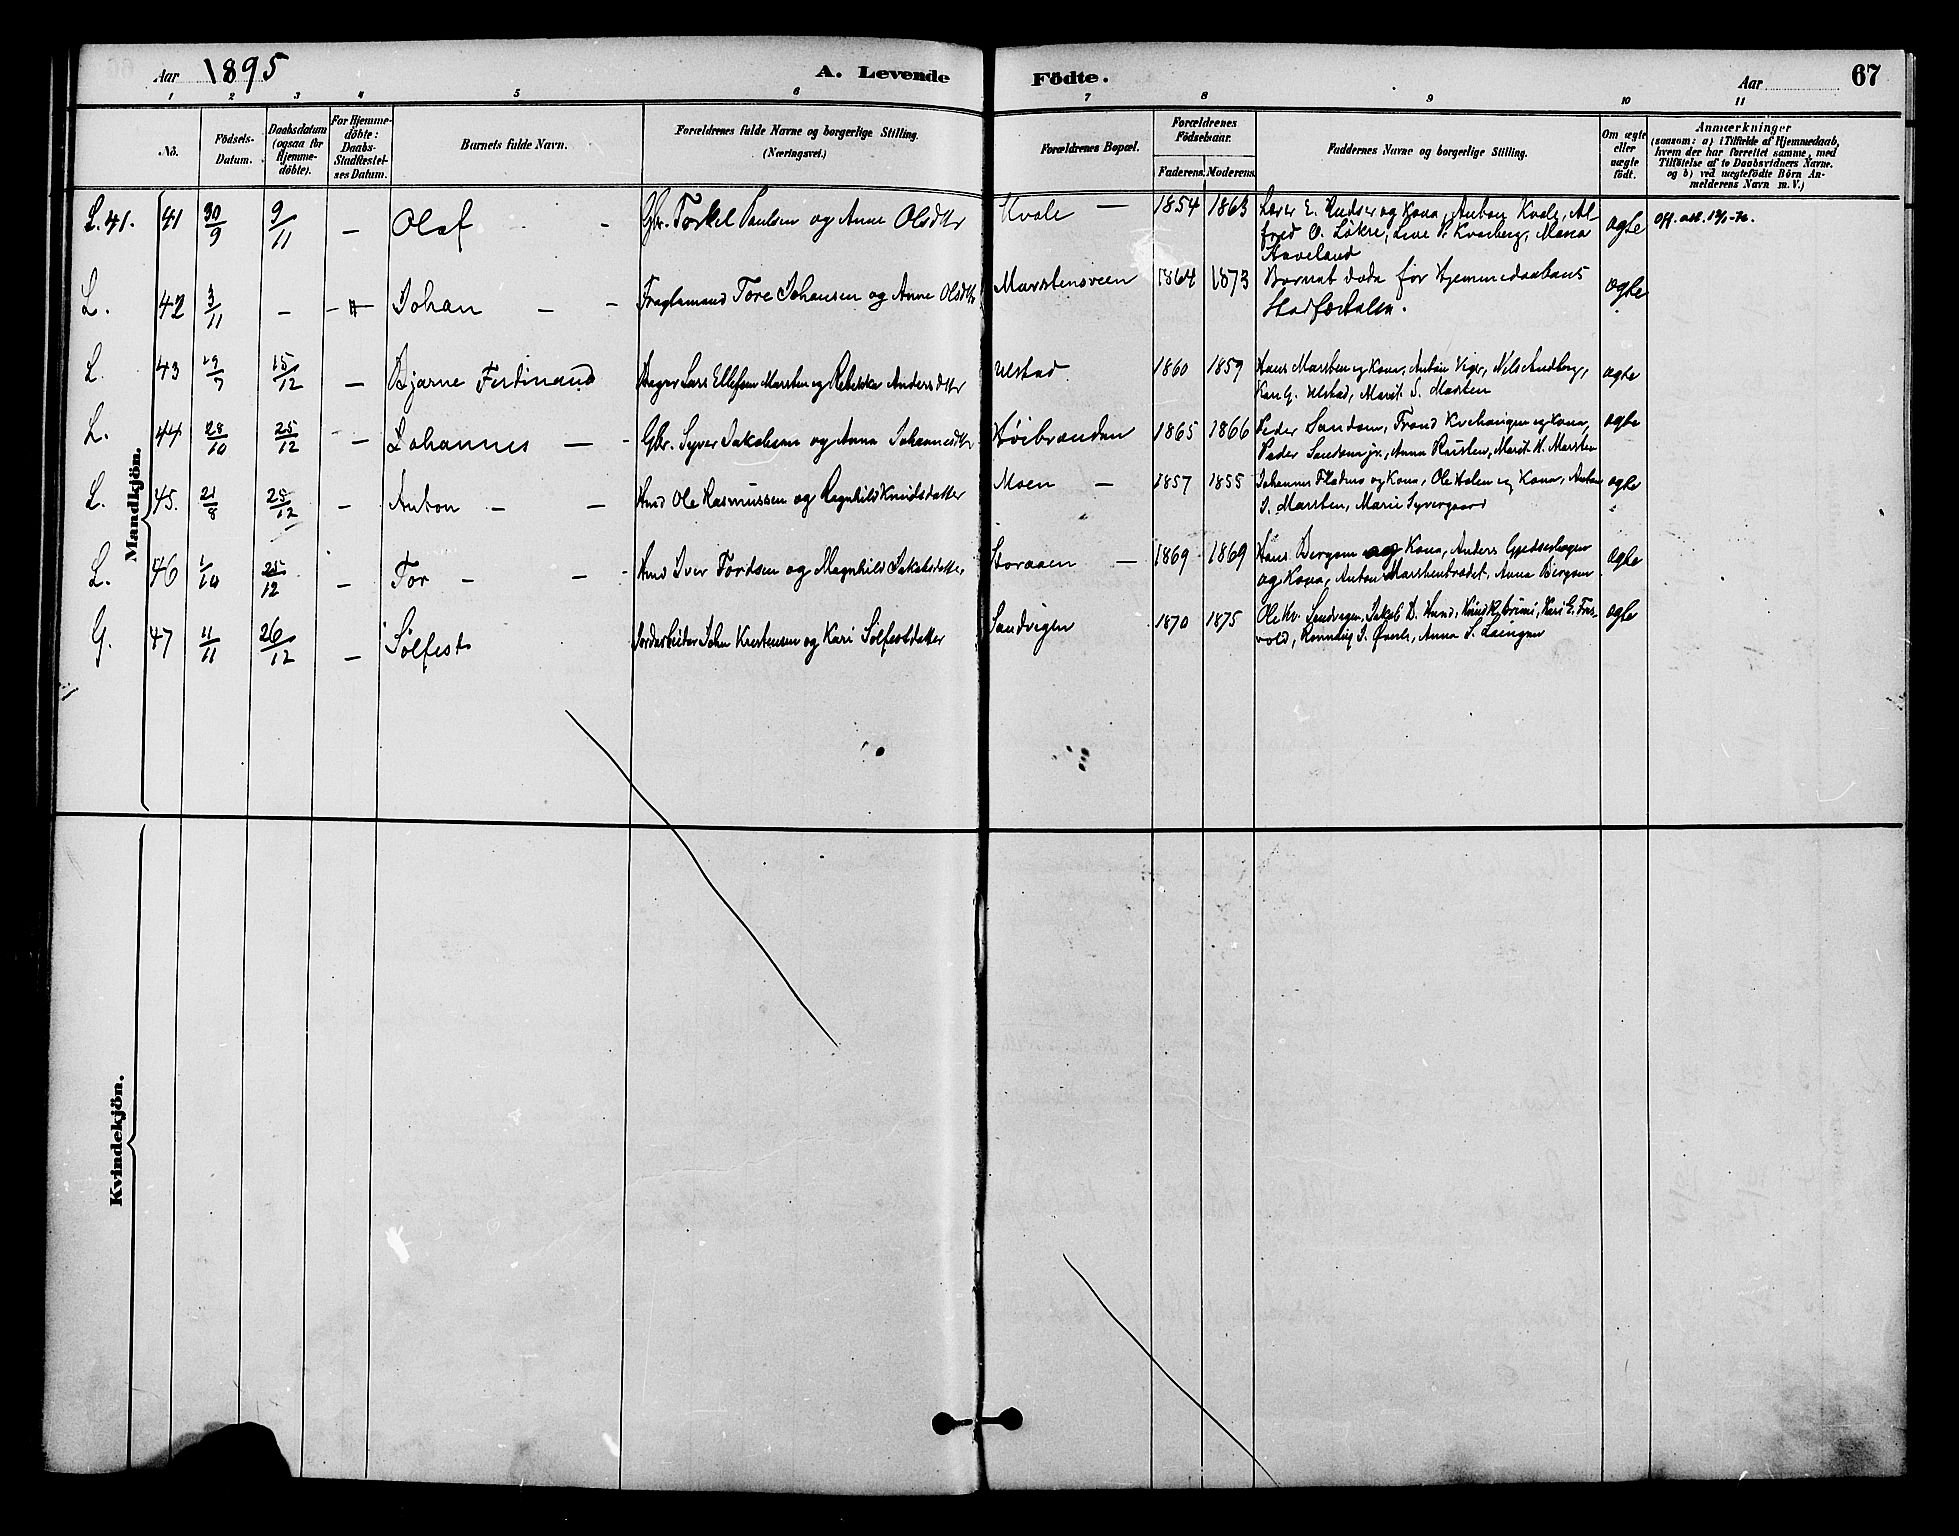 Aar 1895
A. Levende Födte.
Aar
67
1 2 3 4 5 6 7 8 9 10 11
No.
Födsels-
Datum.
Daabsdatum
(ogsaa for
Hjemme-
döbte).
For Hjemme-
döbte:
Daabs-
Stadfæstel-
ses Datum.
Barnets fulde Navn.
Forældrenes fulde Navne og borgerlige Stilling.
(Næringsvei.)
Forældrenes Bopæl.
Forældrenes
Födselsaar.
Faderens. Moderens.
Faddernes Navne og borgerlige Stilling.
Om ægte
eller
uægte
födt.
Anmærkninger
(saasom: a) i Tilfælde af Hjemmedaab,
hvem der har forrettet samme, med
Tilföielse af to Daabsvidners Navne.
og b) ved uægtefödte Börn An-
melderens Navn m. V.)
Mandkjön.
L. 41. 41 30/9 9/11 — Olaf - Gbr. Torkel Paulsen og Anne Olsdtr Kvale — 1854 1863 Lærer E. og Kona, Anton Kvale, Al-
fred O. Løkre, P. Kvarberg, Maria
ægte
L. 42 3/11 — Johan — - Tore Johansen og Anne Olsdtr Marstensveen 1864 1873 Barnet døde før Hjemmedaabens
Stadfæstelse.
ægte
L. 43 19/7 15/12 — Bjarne Ferdinand Lars Ellefsen Marsten og Rebekka Andersdtter Ulstad 1860 1859 Hans Marsten og Kona, Anton Nels
Kari G. Ulstad, Marit S. Marsten
ægte
L. 44. 28/10 25/12 — Johannes — - Gbr. Syver Jakobsen og Anna Johannesdtr Høibrænden 1865 1866 Peder Sandsen, Trond og Kona,
Peder Sandsen jr., Anna Rusten, Marit H. Marsten
ægte
L. 45. 21/8 25/12 — Anton — — Hmd Ole Rasmussen og Ragnhild Knudsdatter Moen — 1857 1855 Johannes og Kona, Ole Holen og Kona, Anton
J. Marsten, Marie Syvergaard
ægte
L. 46 1/10 25/12 — Tor — — Hmd Iver Tordsen og Magnhild Jakobsdatter, Storaaen — 1869 1869 Hans Bergom og Kona, Anders
og Kona, Anton Marstentrædet, Anna Bergom
ægte
G. 47 4/11 26/12 — Sølfest Jordarbeider John Kristensen og Kari Sølfestdatter Sandvigen 1870 1875 Ole Kv. Sandvigen, Jakob D. Hund, Kari E.
Rønnaug J. Øvrelie, Anna S.
ægte
Kvindekjön.